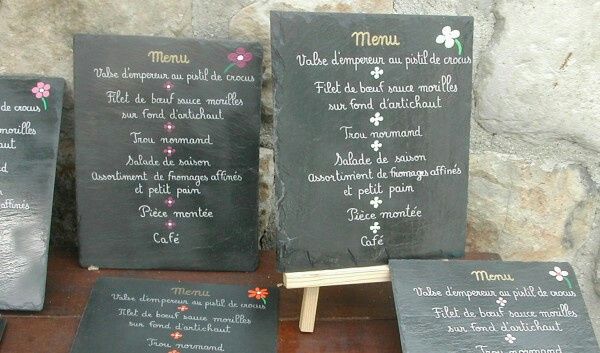 morilles
haut
affinés
Menu
Valse d'empereur au pistil de crocus
Filet de bœuf sauce morilles
sur fond d'artichaut
Trou normand
Salade de saison
Assortiment de fromages affinés
et petit pain
Pièce montée
Café
Menu
Valse d'empereur au pistil de crocus
Filet de bœuf sauce morilles
sur fond d'artichaut
Trou normand
Salade de saison
Assortiment de fromages affinés
et petit pain
Pièce montée
Café
Menu
Valse d'empereur au pistil de crocus
Filet de bœuf sauce morilles
sur fond d'artichaut
Trou normand
Menu
Valse d'empereur au pistil de crocus
Filet de bœuf sauce morilles
sur fond d'artichaut
Trou normand